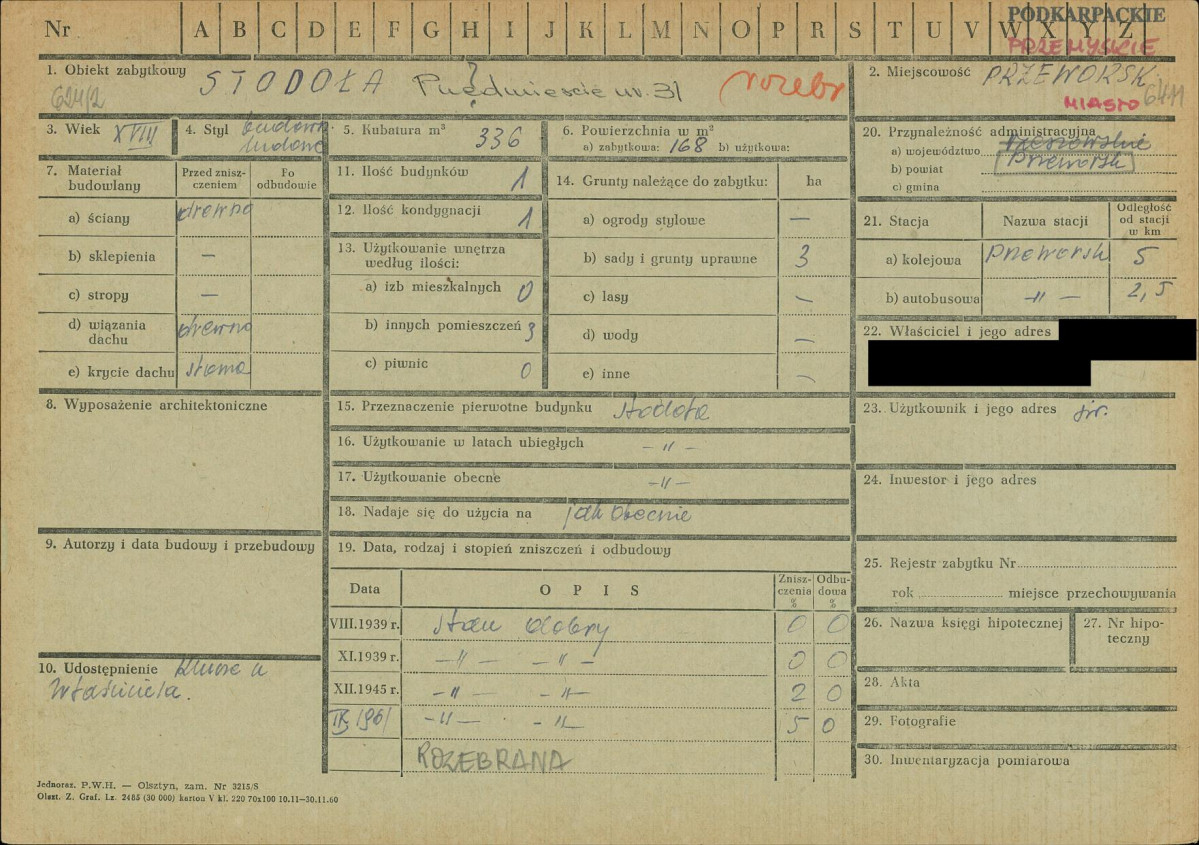 Nr A B C D E F G H I J K L M N O P R S T U V W X Y Z
PODKARPACKIE
PRZEMYSKIE
1. Obiekt zabytkowy STODOŁA Przedmieście nr. 31 rozebr
624/2
2. Miejscowość PRZEWORSK
MIASTO
3. Wiek XVIII
4. Styl budown. ludowe
5. Kubatura m³ 336
6. Powierzchnia w m²
a) zabytkowa: 168 b) użytkowa:
7. Materiał budowlany
Przed zniszczeniem
Po odbudowie
a) ściany drewno
b) sklepienia —
c) stropy —
d) wiązania dachu drewno
e) krycie dachu słoma
8. Wyposażenie architektoniczne
9. Autorzy i data budowy i przebudowy
10. Udostępnienie klucze u
właściciela.
11. Ilość budynków 1
12. Ilość kondygnacji 1
13. Użytkowanie wnętrza
według ilości:
a) izb mieszkalnych 0
b) innych pomieszczeń 3
c) piwnic 0
14. Grunty należące do zabytku: ha
a) ogrody stylowe —
b) sady i grunty uprawne 3
c) lasy —
d) wody —
e) inne —
15. Przeznaczenie pierwotne budynku stodoła
16. Użytkowanie w latach ubiegłych —"—
17. Użytkowanie obecne —"—
18. Nadaje się do użycia na jak obecnie
19. Data, rodzaj i stopień zniszczeń i odbudowy
Data OPIS Zniszczenia % Odbudowa %
VIII.1939 r. Stan dobry 0 0
XI.1939 r. —"— —"— 0 0
XII.1945 r. —"— —"— 2 0
IX 1961 —"— —"— 5 0
ROZEBRANA
20. Przynależność administracyjna
a) województwo rzeszowskie
b) powiat Przeworsk
c) gmina
21. Stacja Nazwa stacji Odległość od stacji w km
a) kolejowa Przeworsk 5
b) autobusowa —"— 2,5
22. Właściciel i jego adres
23. Użytkownik i jego adres
24. Inwestor i jego adres
25. Rejestr zabytku Nr
rok miejsce przechowywania
26. Nazwa księgi hipotecznej
27. Nr hipoteczny
28. Akta
29. Fotografie
30. Inwentaryzacja pomiarowa
Jednoraz. P.W.H. — Olsztyn, zam. Nr 3215/S
Olszt. Z. Graf. Lz. 2485 (30 000) karton V kl. 220 70x100 10.11—30.11.60